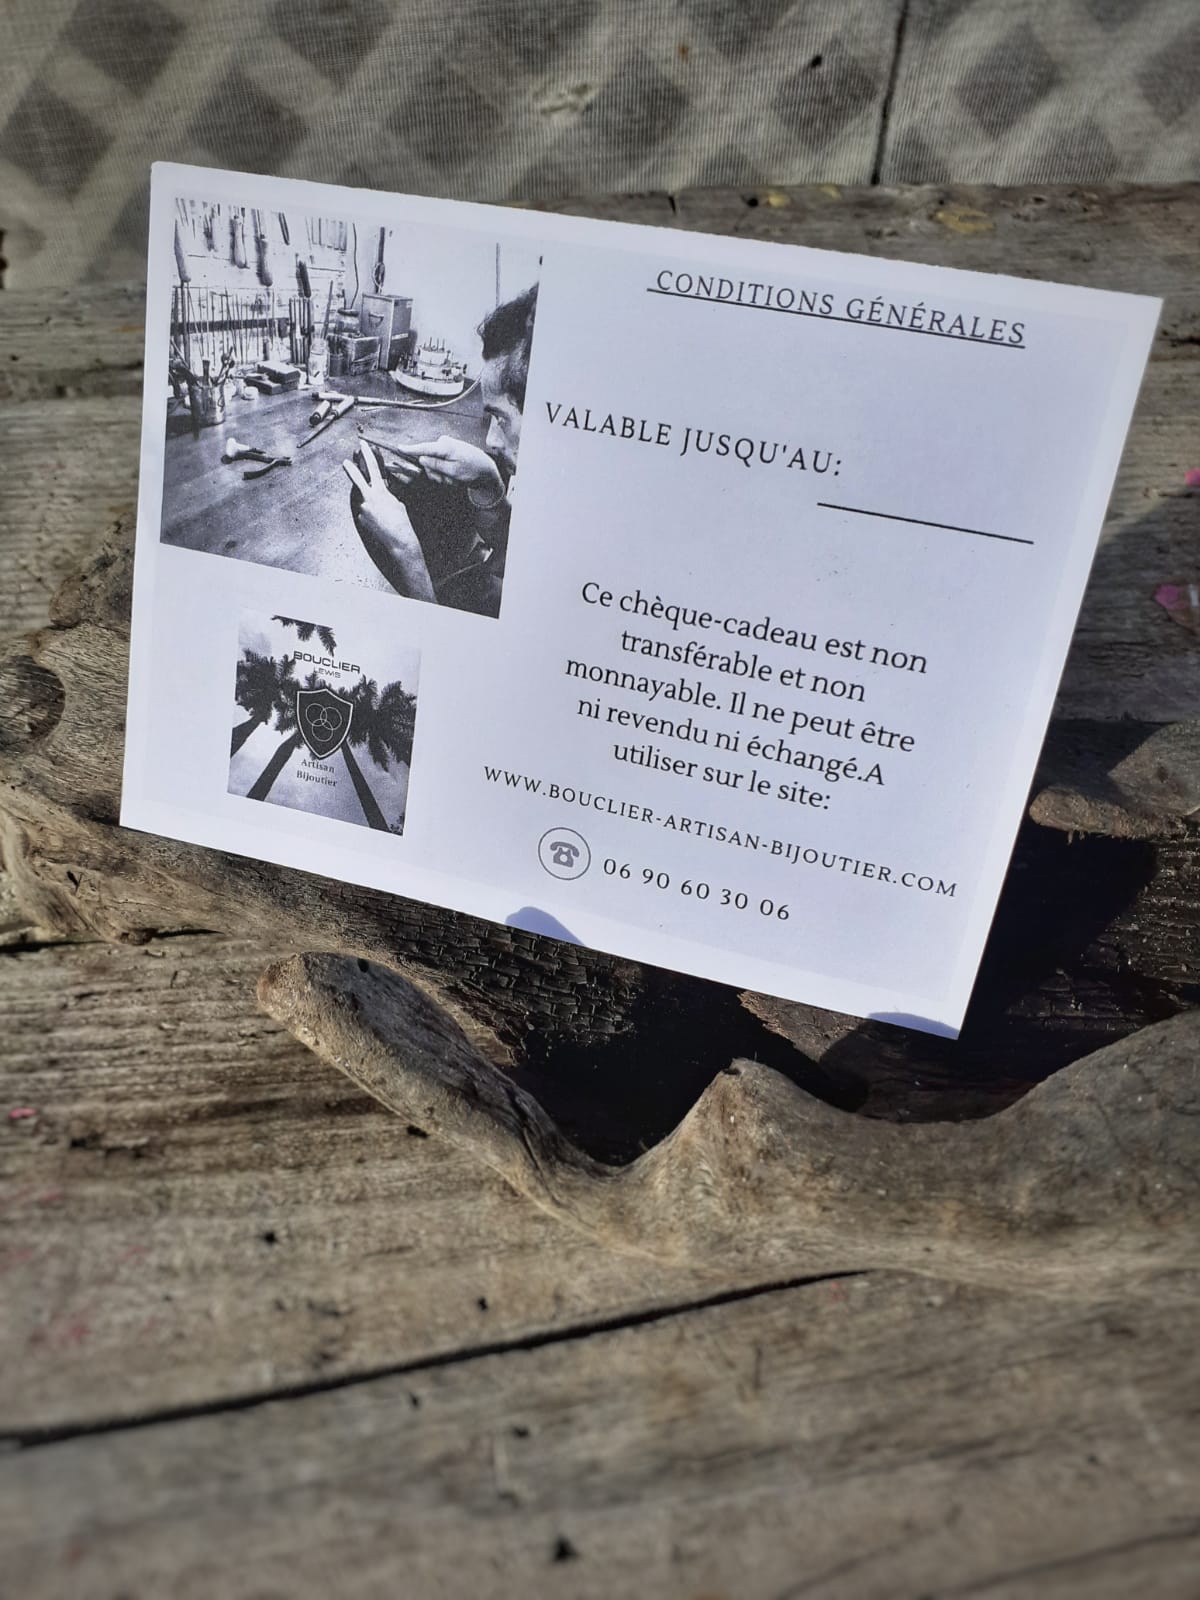 CONDITIONS GÉNÉRALES
VALABLE JUSQU'AU:
Ce chèque-cadeau est non
transférable et non
monnayable. Il ne peut être
ni revendu ni échangé.A
utiliser sur le site:
WWW.BOUCLIER-ARTISAN-BIJOUTIER.COM
06 90 60 30 06
BOUCLIER
LEWIS
Artisan
Bijoutier